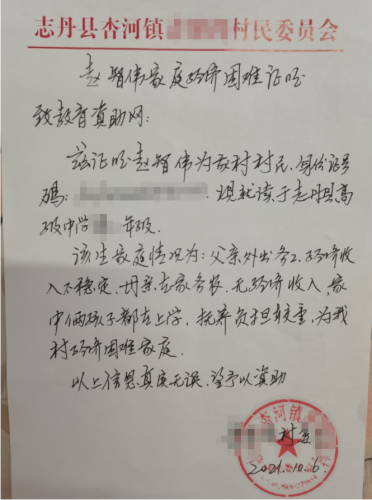 志丹县杏河镇 村民委员会
赵智伟家庭经济困难证明
致教育资助网:
兹证明赵智伟为我村村民,身份证号
码: 现就读于志丹县高
级中学 年级.
该生家庭情况为:父亲外出务工,经济收
入不稳定,母亲在家务农,无经济收入,家
中俩孩子都在上学,抚养负担较重,为我
村经济困难家庭.
以上信息真实无误,望予以资助
杏河镇
村委
2021.10.6